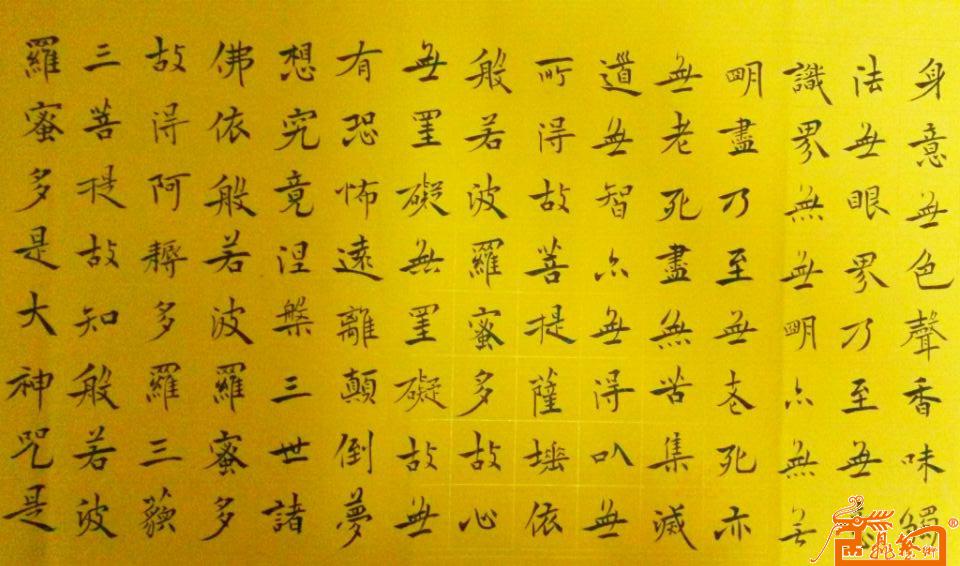 身意無色聲香味觸
法無眼界乃至無
識界無無明亦無無
明盡乃至無老死亦
無老死盡無苦集滅
道無智亦無得以無
所得故菩提薩埵依
般若波羅蜜多故心
無罣礙無罣礙故無
有恐怖遠離顛倒夢
想究竟涅槃三世諸
佛依般若波羅蜜多
故得阿耨多羅三藐
三菩提故知般若波
羅蜜多是大神咒是